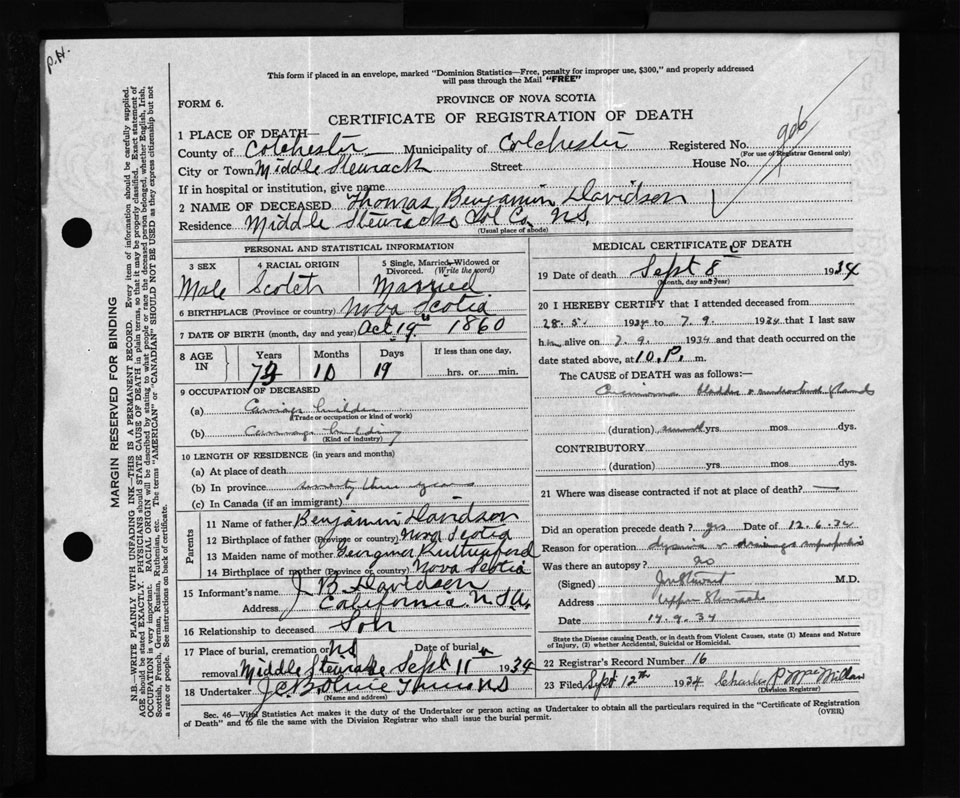 P.H.
This form if placed in an envelope, marked "Dominion Statistics—Free, penalty for improper use, $300," and properly addressed
will pass through the Mail "FREE"
FORM 6.
PROVINCE OF NOVA SCOTIA
CERTIFICATE OF REGISTRATION OF DEATH
906
1 PLACE OF DEATH—
County of Colchester Municipality of Colchester Registered No.
(For use of Registrar General only)
City or Town Middle Stewiack Street House No.
If in hospital or institution, give name
2 NAME OF DECEASED Thomas Benjamin Davidson
Residence Middle Stewiacke Col Co. N.S.
(Usual place of abode)
PERSONAL AND STATISTICAL INFORMATION
3 SEX 4 RACIAL ORIGIN 5 Single, Married, Widowed or
Divorced. (Write the word)
Male Scotch Married
6 BIRTHPLACE (Province or country) Nova Scotia
7 DATE OF BIRTH (month, day and year) Oct 19th 1860
8 AGE IN Years Months Days If less than one day,
73 10 19 hrs. or min.
9 OCCUPATION OF DECEASED
(a) Carriage builder
(Trade or occupation or kind of work)
(b) Carriage building
(Kind of industry)
10 LENGTH OF RESIDENCE (in years and months)
(a) At place of death
(b) In province seventy three years
(c) In Canada (if an immigrant)
Parents
11 Name of father Benjamin Davidson
12 Birthplace of father (Province or country) Nova Scotia
13 Maiden name of mother Georgina Rutherford
14 Birthplace of mother (Province or country) Nova Scotia
15 Informant's name J B Davidson
Address California U.S.A.
16 Relationship to deceased Son
17 Place of burial, cremation or N.S. Date of burial
removal Middle Stewiacke Sept 11th 1934
18 Undertaker J.C. N.S.
(Name and address)
MEDICAL CERTIFICATE OF DEATH
19 Date of death Sept 8th 1934
(Month, day and year)
20 I HEREBY CERTIFY that I attended deceased from
28.5. 1934 to 7.9. 1934 that I last saw
him alive on 7.9. 1934 and that death occurred on the
date stated above, at 10.P. m.
The CAUSE of DEATH was as follows:—
Carcinoma bladder glands
(duration) yrs mos dys.
CONTRIBUTORY
(duration) yrs mos dys.
21 Where was disease contracted if not at place of death? —
Did an operation precede death? yes Date of 12.6.34
Reason for operation
Was there an autopsy? no
(Signed) Stewart M.D.
Address Upper Stewiacke
Date 14.9.34
State the Disease causing Death, or in death from Violent Causes, state (1) Means and Nature
of Injury, (2) whether Accidental, Suicidal or Homicidal.
22 Registrar's Record Number 16
23 Filed Sept 12th 1934 Charles P MacMillan
(Division Registrar)
Sec. 46—Vital Statistics Act makes it the duty of the Undertaker or person acting as Undertaker to obtain all the particulars required in the "Certificate of Registration
of Death" and to file the same with the Division Registrar who shall issue the burial permit. (OVER)
MARGIN RESERVED FOR BINDING
N.B.—WRITE PLAINLY WITH UNFADING INK—THIS IS A PERMANENT RECORD. Every item of information should be carefully supplied.
AGE should be stated EXACTLY. PHYSICIANS should STATE CAUSE OF DEATH in plain terms, so that it may be properly classified. Exact statement of
OCCUPATION is very important. RACIAL ORIGIN will be described by stating to what people or race the deceased person belonged, whether English, Irish,
Scottish, French, German, Russian, Ruthenian, etc. The terms "AMERICAN" or "CANADIAN" SHOULD NOT BE USED as they express citizenship but not
a race or people. See instructions on back of certificate.